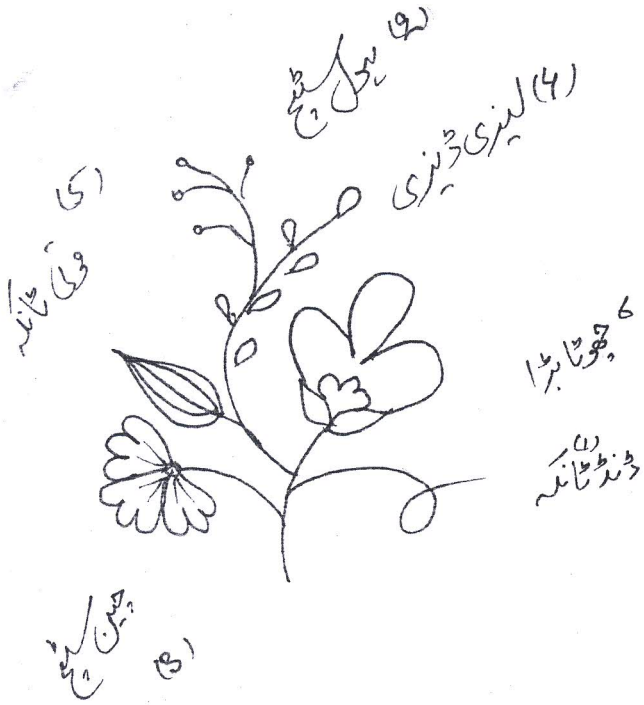 (2) سٹچ
(4) لیزی ڈیزی
(5) ٹانکہ
6 چھوٹا بڑا
(1) ڈنڈ ٹانکہ
چین سٹچ (3)